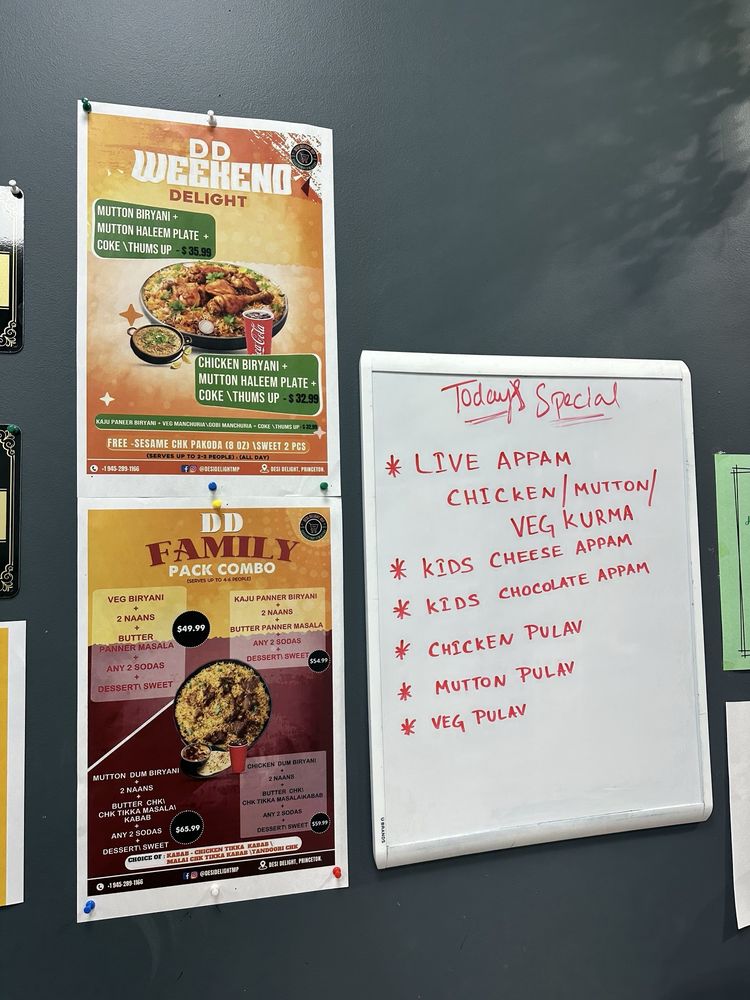 DD
WEEKEND
DELIGHT
MUTTON BIRYANI +
MUTTON HALEEM PLATE +
COKE \THUMS UP - $ 35.99
Coca-Cola
CHICKEN BIRYANI +
MUTTON HALEEM PLATE +
COKE \THUMS UP - $ 32.99
KAJU PANEER BIRYANI + VEG MANCHURIA\GOBI MANCHURIA + COKE \THUMS UP -
FREE -SESAME CHK PAKODA (8 OZ) \SWEET 2 PCS
(SERVES UP TO 2-3 PEOPLE) - (ALL DAY)
+1 945-289-1166
@DESIDELIGHTMP
DESI DELIGHT, PRINCETON.
DD
FAMILY
PACK COMBO
(SERVES UP TO 4-6 PEOPLE)
VEG BIRYANI
+
2 NAANS
+
BUTTER
PANNEER MASALA
+
ANY 2 SODAS
+
DESSERT\ SWEET
$49.99
KAJU PANNER BIRYANI
+
2 NAANS
+
BUTTER PANNER MASALA
+
ANY 2 SODAS
+
DESSERT\ SWEET
$54.99
MUTTON DUM BIRYANI
+
2 NAANS
+
BUTTER CHK\
CHK TIKKA MASALA\
KABAB
+
ANY 2 SODAS
+
DESSERT\ SWEET
$65.99
CHICKEN DUM BIRYANI
+
2 NAANS
+
BUTTER CHK\
CHK TIKKA MASALA\KABAB
+
ANY 2 SODAS
+
DESSERT\ SWEET
$59.99
CHOICE OF : KABAB - CHICKEN TIKKA KABAB \
MALAI CHK TIKKA KABAB \TANDOORI CHK
+1 945-289-1166
@DESIDELIGHTMP
DESI DELIGHT, PRINCETON.
Today's Special
* LIVE APPAM
CHICKEN/MUTTON/
VEG KURMA
* KIDS CHEESE APPAM
* KIDS CHOCOLATE APPAM
* CHICKEN PULAV
* MUTTON PULAV
* VEG PULAV
U BRANDS